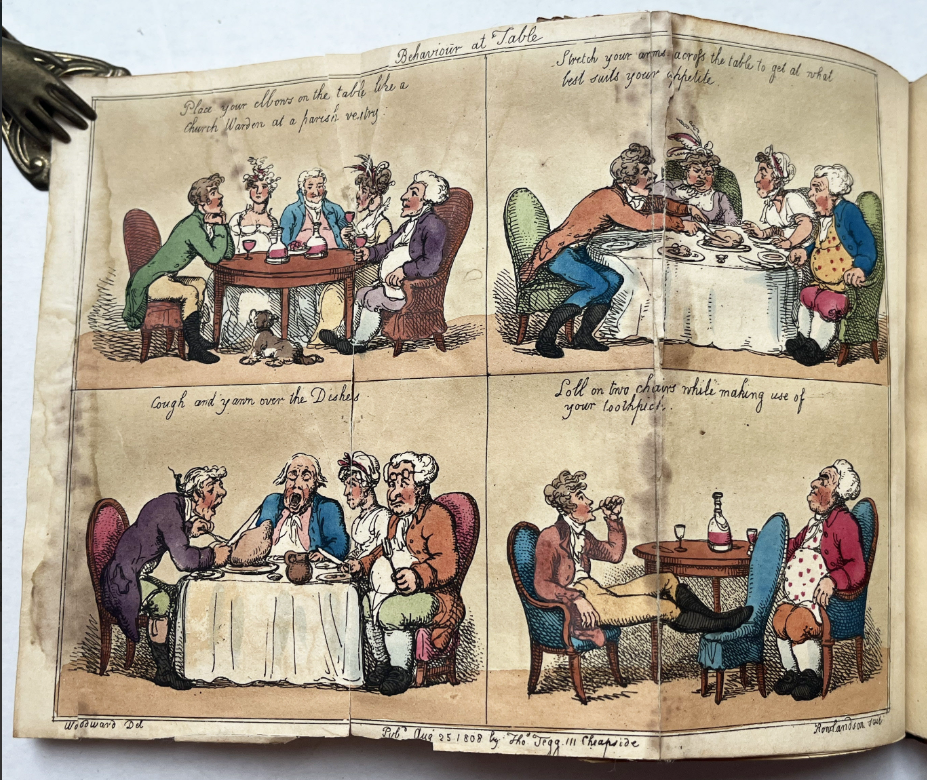 Behaviour at Table
Place your elbows on the table like a
Church Warden at a parish vestry.
Stretch your arms acroſs the table to get at what
best suits your appetite.
Cough and yawn over the Dishes
Loll on two chairs while making use of
your toothpick.
Woodward Del
Pubd Aug 25 1808 by Thos Tegg 111 Cheapside
Rowlandson sculp